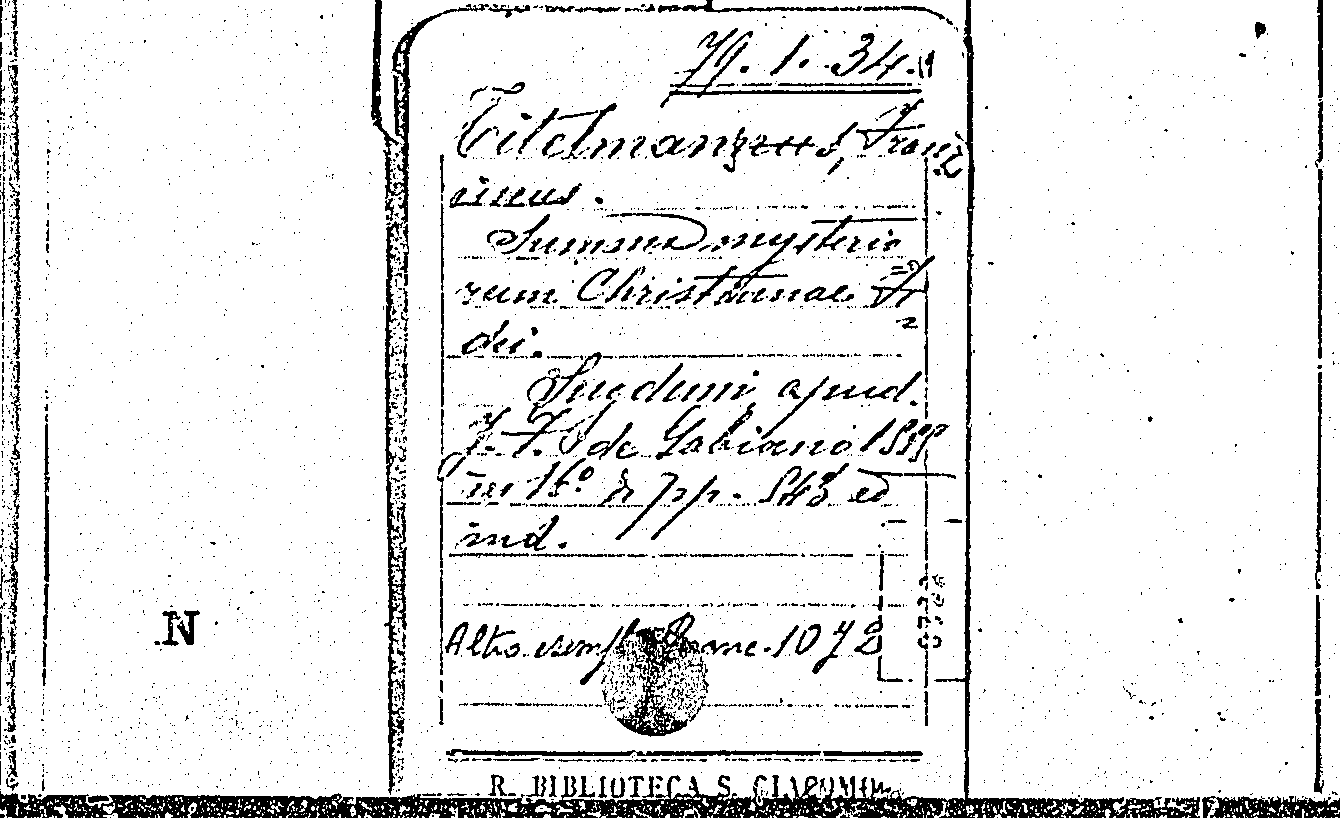 79. 1. 34.
Titelmannus, Franc
iscus.
Summa mysterio
rum Christianae Fi
dei.
Lugduni, apud.
J. F. de Gabiano 1555
in 16° di pp. 543 ed
ind.
N
Altro esempl. Branc. 107
R. BIBLIOTECA S. GIACOMO